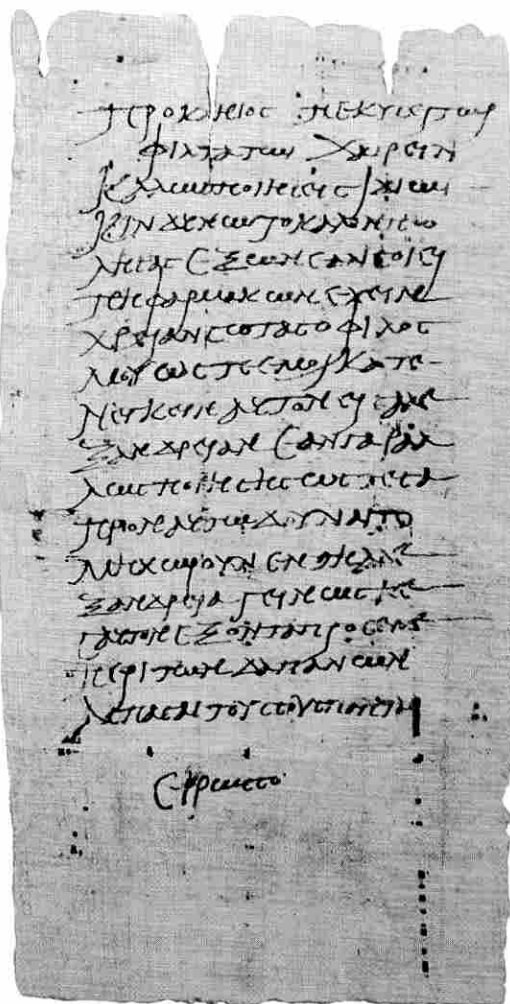 προκληιος πεκυσει τωι
φιλτατωι χαιρειν
καλως ποιησεις ιδιωι
κινδυνωι το καλον πω
λησας εξ ων εαν σοι ει
πη φαρμακων εχειν
χρειαν σωτας ο φιλος
μου ωστε εμοι κατε
νεγκειν αυτον εις αλε
ξανδρειαν εαν γαρ αλ
λως ποιησης ωστε σα
προν αυτωι δουναι το
μη χωρουν εν τη αλε
ξανδρεια γεινωσκε
σαυτον εξοντα προς εμε
περι των δαπανων
ασπασαι τους σους παντας
ερρωσο